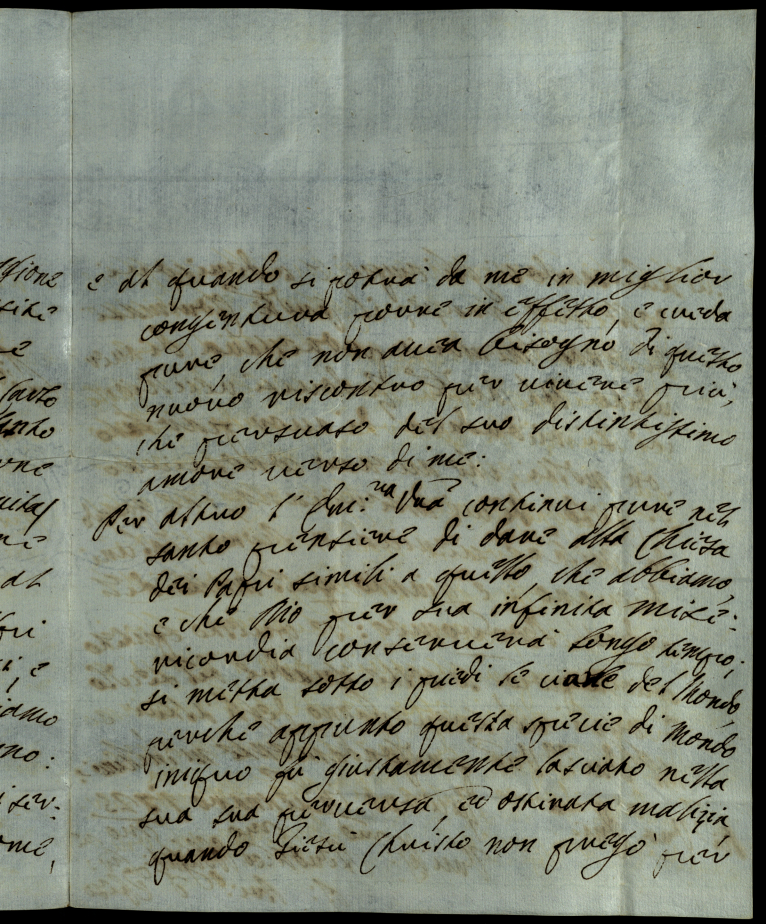 gione
e al quando si potrà da me in miglior
congentura porre in effetto, e creda
pure, che non avea bisogno di questo
nuovo riscontro per vivere più,
che persuaso del suo distintissimo
amore verso di me:
Per altro l' Em.ᶻᵃ Vrã continui pure nel
santo pensiere di dare alla Chiesa
dei Papi simili a questo, che abbiamo,
e che Dio per sua infinita mise-
ricordia conserverà longo tempo;
si metta sotto i piedi le ciarle del Mondo,
perche appunto questa specie di Mondo
iniquo fù giustamente lasciato nella
sua sua perversa, ed ostinata malizia,
quando Giesù Christo non pregò per
al
iamo
no:
ome,